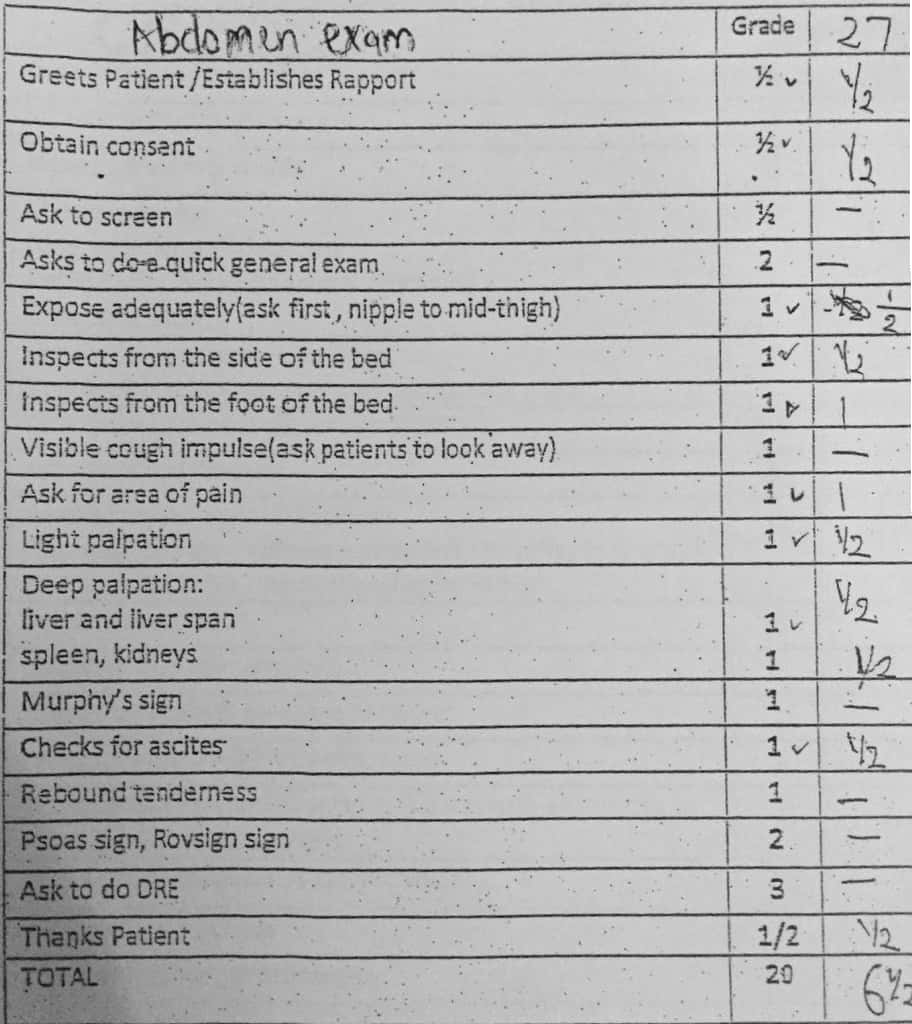 Abdomen exam Grade 27
Greets Patient/Establishes Rapport ½ ✓ 1/2
Obtain consent ½ ✓ 1/2
Ask to screen ½ —
Asks to do a quick general exam 2 —
Expose adequately(ask first, nipple to mid-thigh) 1 ✓ 1/2
Inspects from the side of the bed 1 ✓ 1/2
Inspects from the foot of the bed 1 ✓ 1
Visible cough impulse(ask patients to look away) 1 —
Ask for area of pain 1 ✓ 1
Light palpation 1 ✓ 1/2
Deep palpation:
liver and liver span 1 ✓ 1/2
spleen, kidneys 1 1/2
Murphy's sign 1 —
Checks for ascites 1 ✓ 1/2
Rebound tenderness 1 —
Psoas sign, Rovsign sign 2 —
Ask to do DRE 3 —
Thanks Patient 1/2 1/2
TOTAL 20 6 1/2